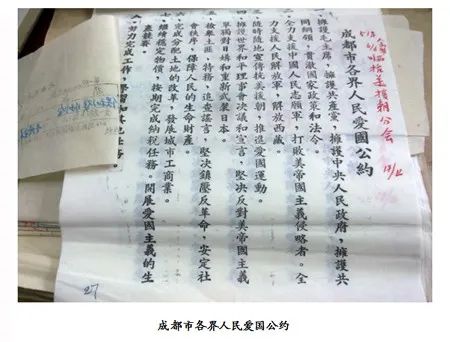 抗美援朝分会
成都市各界人民愛國公約
一、擁護毛主席，擁護共產黨，擁護中央人民政府，擁護共
同綱領，貫澈國家政策和法令。
二、全力支援中國人民志願軍，打敗美帝國主義侵略者。全
力支援人民解放軍，解放西藏。
三、隨時隨地宣傳抗美援朝，推進愛國運動。
四、擁護世界和平理事會決議和宣言，堅决反對美帝國主義
單獨對日媾和和重新武裝日本。
五、檢舉土匪、特務，追查謠言，堅决鎮壓反革命，安定社
會秩序，保障人民的生命財產。
六、完成分配土地的改革，發展城市工商業。
七、繼續穩定物價，按期完成納稅任務。開展愛國主義的生
產競賽。
八、努力完成工作、學習和其他任務。
27
成都市各界人民爱国公约